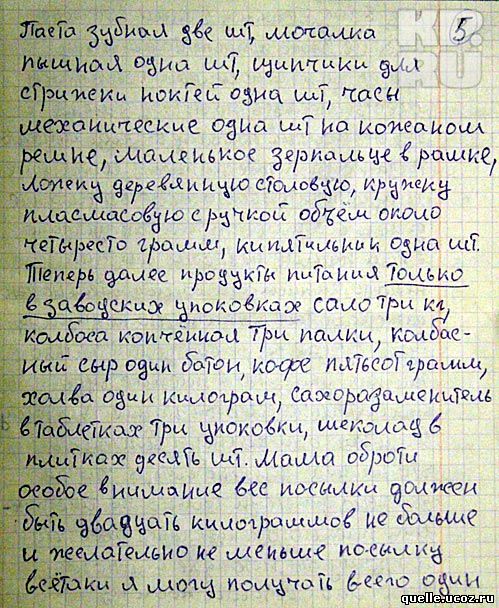 KP.RU
5.
Паста зубная две шт, мочалка
пышная одна шт, щипчики для
стрижки ноктей одна шт, часы
механические одна шт на кожаном
ремне, маленькое зеркальце в рамке,
ложку деревянную столовую, кружку
пласмасовую с ручкой объём около
четыресто грамм, кипятильник одна шт.
Теперь далее продукты питания только
в заводских упоковках сало три кг,
колбоса копчённая три палки, колбас-
ный сыр один батон, кофе пятьсот грамм,
халва один килограм, сахоразаменитель
в таблетках три упоковки, шеколад в
плитках десять шт. Мама оброти
особое внимание вес посылки должен
быть двадцать килограммов не больше
и жеслательно не меньше посылку
всётаки я могу получать всего один
quelle.ucoz.ru